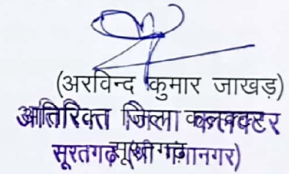 (अरविन्द कुमार जाखड़)
अतिरिक्त जिला कलक्टर
सूरतगढ़ (श्री गंगानगर)